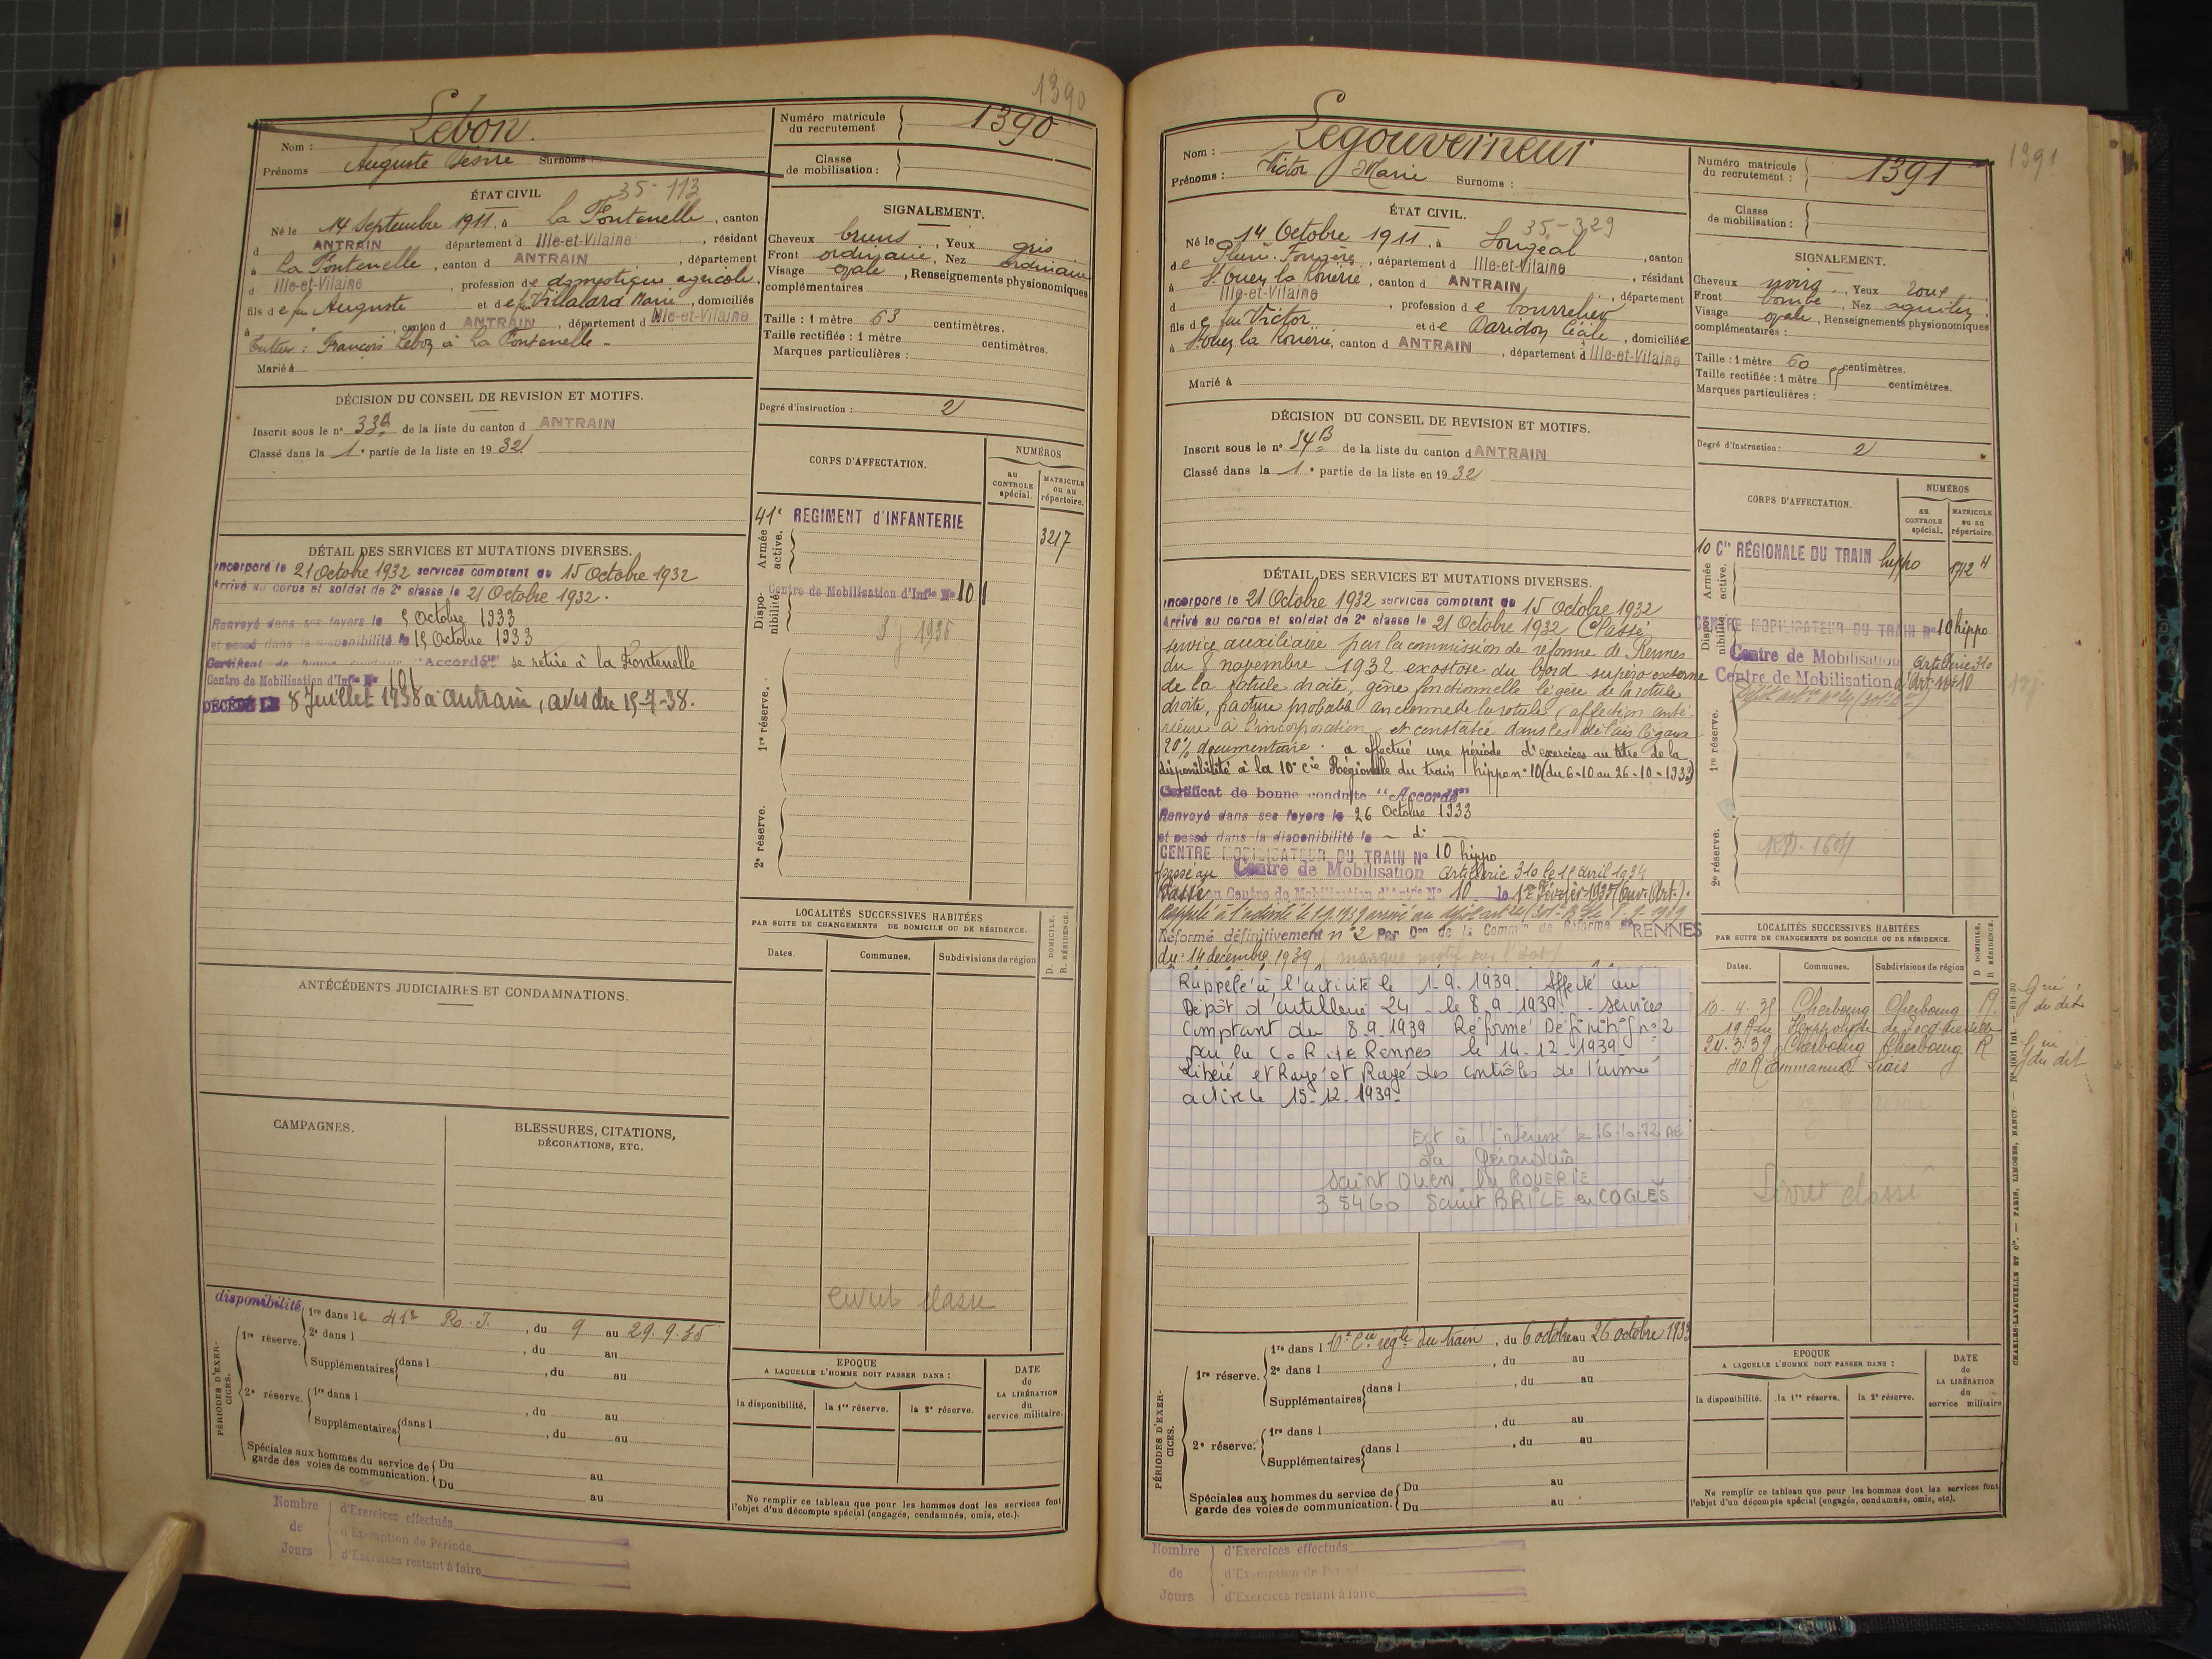 1390
Lebon.
Nom :
Prénoms Auguste Désiré Surnoms :
Numéro matricule du recrutement 1390
Classe de mobilisation :
ÉTAT CIVIL
35-113
Né le 14 Septembre 1911, à La Fontenelle, canton
d ANTRAIN département d Ille-et-Vilaine, résidant
à La Fontenelle, canton d ANTRAIN, département
d Ille-et-Vilaine, profession de domestique agricole,
fils de feu Auguste et de feu Villalard Marie, domiciliés
à , canton d ANTRAIN, département d Ille-et-Vilaine
Tuteur : François Lebon à La Fontenelle -
Marié à
SIGNALEMENT.
Cheveux bruns, Yeux gris
Front ordinaire, Nez ordinaire
Visage ovale, Renseignements physionomiques
complémentaires
Taille : 1 mètre 63 centimètres.
Taille rectifiée : 1 mètre centimètres.
Marques particulières :
Degré d'instruction : 2
DÉCISION DU CONSEIL DE REVISION ET MOTIFS.
Inscrit sous le n° de la liste du canton d ANTRAIN
Classé dans la 1e partie de la liste en 1932
CORPS D'AFFECTATION.
NUMÉROS
au CONTROLE spécial.
MATRICULE ou au répertoire.
Armée active.
41e REGIMENT d'INFANTERIE
3217
Disponibilité.
Centre de Mobilisation d'Infie No 101
1re réserve.
2e réserve.
DÉTAIL DES SERVICES ET MUTATIONS DIVERSES.
Incorporé le 21 Octobre 1932 services comptant du 15 Octobre 1932
Arrivé au corps et soldat de 2e classe le 21 Octobre 1932.
Renvoyé dans ses foyers le Octobre 1933
et passé dans la disponibilité le 15 Octobre 1933
Certificat de bonne conduite "Accordé" se retire à la Fontenelle
Centre de Mobilisation d'Infie No 101
DÉCÉDÉ LE 8 Juillet 1938 à Antrain, avis du 15-7-38.
ANTÉCÉDENTS JUDICIAIRES ET CONDAMNATIONS.
CAMPAGNES.
BLESSURES, CITATIONS, DÉCORATIONS, ETC.
LOCALITÉS SUCCESSIVES HABITÉES
PAR SUITE DE CHANGEMENTS DE DOMICILE OU DE RÉSIDENCE.
Dates.
Communes.
Subdivisions de région
D. DOMICILE.
R. RÉSIDENCE.
Livret classé
disponibilité
PÉRIODES D'EXERCICES.
1re réserve. 1re dans le 41e R.I., du 9 au 29.9.35
2e dans l , du au
Supplémentaires dans l , du au
2e réserve. 1re dans l , du au
Supplémentaires dans l , du au
Spéciales aux hommes du service de garde des voies de communication. Du au
Du au
EPOQUE
A LAQUELLE L'HOMME DOIT PASSER DANS :
la disponibilité.
la 1re réserve.
la 2e réserve.
DATE de LA LIBÉRATION du service militaire.
Ne remplir ce tableau que pour les hommes dont les services font
l'objet d'un décompte spécial (engagés, condamnés, omis, etc.).
Nombre de Jours
d'Exercices effectués
d'Exemption de Période
d'Exercices restant à faire
1391
Legouverneur
Nom :
Prénoms : Victor Marie Surnoms :
Numéro matricule du recrutement : 1391
Classe de mobilisation :
ÉTAT CIVIL.
35-329
Né le 14 Octobre 1911, à Sougeal, canton
de Pleine Fougères, département d Ille-et-Vilaine, résidant
à St Ouen la Rouerie, canton d ANTRAIN, département
d Ille-et-Vilaine, profession de bourrelier
fils de feu Victor et de Daridon Cécile, domiciliée
à St Ouen la Rouerie, canton d ANTRAIN, département d Ille-et-Vilaine
Marié à
SIGNALEMENT.
Cheveux noirs, Yeux roux
Front bombé, Nez aquilin
Visage ovale, Renseignements physionomiques
complémentaires :
Taille : 1 mètre 60 centimètres.
Taille rectifiée : 1 mètre centimètres.
Marques particulières :
Degré d'instruction : 2
DÉCISION DU CONSEIL DE REVISION ET MOTIFS.
Inscrit sous le n° 54 B de la liste du canton d ANTRAIN
Classé dans la 1e partie de la liste en 1932
CORPS D'AFFECTATION.
NUMÉROS
au CONTROLE spécial.
MATRICULE ou au répertoire.
Armée active.
10 Cie RÉGIONALE DU TRAIN hippo
1712 H
Disponibilité.
CENTRE MOBILISATEUR DU TRAIN No 10 hippo
Centre de Mobilisation Artillerie 310
Centre de Mobilisation d'Art. No 10
1re réserve.
2e réserve.
DÉTAIL DES SERVICES ET MUTATIONS DIVERSES.
Incorporé le 21 Octobre 1932 services comptant du 15 Octobre 1932
Arrivé au corps et soldat de 2e classe le 21 Octobre 1932 Classé
service auxiliaire par la commission de réforme de Rennes
du 8 novembre 1932 exostose du bord supéro externe
de la rotule droite, gêne fonctionnelle légère de la rotule
droite, fracture probable ancienne de la rotule (affection anté-
rieure à l'incorporation et constatée dans les délais légaux
20% documentaire. a effectué une période d'exercices au titre de la
disponibilité à la 10e Cie Régionale du train hippo n°10 (du 6-10 au 26-10-1933)
Certificat de bonne conduite "Accordé"
Renvoyé dans ses foyers le 26 Octobre 1933
et passé dans la disponibilité le - d° -
CENTRE MOBILISATEUR DU TRAIN No 10 hippo
passé au Centre de Mobilisation Artillerie 310 le 15 avril 1934
Passé au Centre de Mobilisation d'Artrie No 10 le 1er Février 1937
Réformé définitivement n°2 Par Don de la Common de Réforme de RENNES
du 14 décembre 1939 (manque motif sur l'état)
Rappelé à l'activité le 1.9.1939. Affecté au
Dépôt d'artillerie 24 - le 8.9.1939 - services
Comptant du 8.9.1939 Réformé Définitif n°2
par la C.R de Rennes le 14-12-1939-
Libéré et Rayé et Rayé des contrôles de l'armée
active le 15-12-1939-
Ext à l'intéressé le 16-10-72
Saint Ouen la ROUERIE
35460 Saint BRICE en COGLÈS
LOCALITÉS SUCCESSIVES HABITÉES
PAR SUITE DE CHANGEMENTS DE DOMICILE OU DE RÉSIDENCE.
Dates.
Communes.
Subdivisions de région
D DOMICILE.
R RÉSIDENCE.
10-4-35 Cherbourg Cherbourg R.
19 Rue Hippolyte de Tocqueville
24.3.39 Cherbourg Cherbourg R
40 R Emmanuel Liais
Livret classé
PÉRIODES D'EXERCICES.
1re réserve. 1re dans l 10e Cie régle du train, du 6 octobre au 26 octobre 1933
2e dans l , du au
Supplémentaires dans l , du au
2e réserve. 1re dans l , du au
Supplémentaires dans l , du au
Spéciales aux hommes du service de garde des voies de communication. Du au
Du au
EPOQUE
A LAQUELLE L'HOMME DOIT PASSER DANS :
la disponibilité.
la 1re réserve.
la 2e réserve.
DATE de LA LIBÉRATION du service militaire
Ne remplir ce tableau que pour les hommes dont les services font
l'objet d'un décompte spécial (engagés, condamnés, omis, etc).
CHARLES-LAVAUZELLE ET Cie. — PARIS, LIMOGES, NANCY.
Nombre de Jours
d'Exercices effectués
d'Exemption de Période
d'Exercices restant à faire